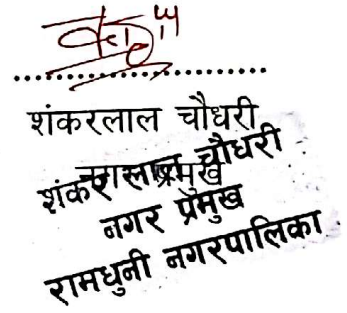 शंकरलाल चौधरी
नगर प्रमुख
शंकर लाल चौधरी
नगर प्रमुख
रामधुनी नगरपालिका